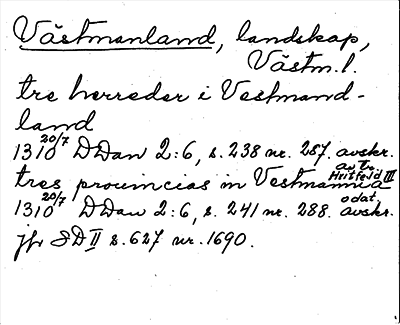 Västmanland, landskap,
Västm.l.
tre herreder i Vestmand-
land
1310 20/7 DDan 2:6, s. 238 nr. 287. avskr.
av tr. Hvitfeld III
tres provincias in Vestmannia
1310 20/7 DDan 2:6, s. 241 nr. 288. odat. avskr.
jfr SD II s. 627 nr. 1690.